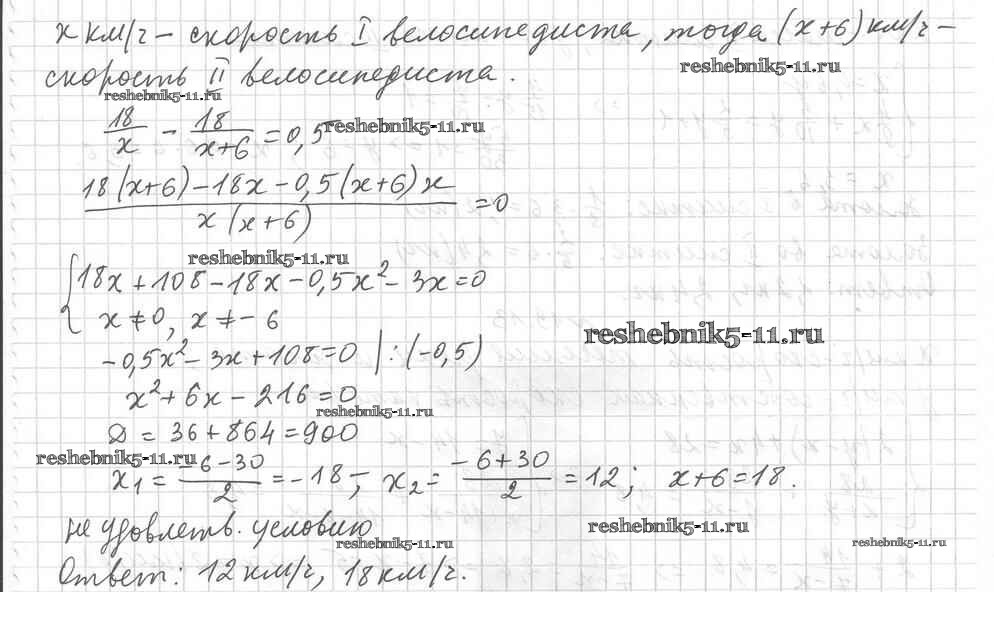 x км/ч – скорость I велосипедиста, тогда (x+6) км/ч –
reshebnik5-11.ru
скорость II велосипедиста.
reshebnik5-11.ru
18/x – 18/(x+6) = 0,5
reshebnik5-11.ru
(18(x+6) – 18x – 0,5(x+6)x)/(x(x+6)) = 0
reshebnik5-11.ru
{18x + 108 – 18x – 0,5x² – 3x = 0
x ≠ 0, x ≠ – 6
reshebnik5-11.ru
–0,5x² – 3x + 108 = 0 | : (–0,5)
x² + 6x – 216 = 0
reshebnik5-11.ru
D = 36 + 864 = 900
reshebnik5-11.ru
x₁ = (–6–30)/2 = –18 –; x₂ = (–6+30)/2 = 12; x+6 = 18.
не удовлетв. условию
reshebnik5-11.ru
reshebnik5-11.ru
reshebnik5-11.ru
Ответ: 12 км/ч, 18 км/ч.